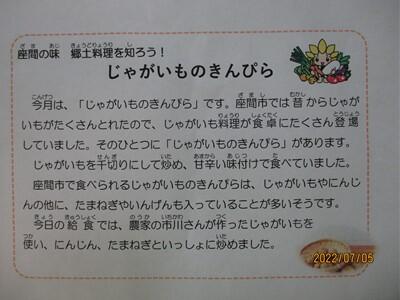 座間の味 郷土料理を知ろう！
じゃがいものきんぴら
今月は、「じゃがいものきんぴら」です。座間市では昔からじゃが
いもがたくさんとれたので、じゃがいも料理が食卓にたくさん登場
していました。そのひとつに「じゃがいものきんぴら」があります。
じゃがいもを千切りにして炒め、甘辛い味付けで食べていました。
座間市で食べられるじゃがいものきんぴらは、じゃがいもやにんじ
んの他に、たまねぎやいんげんも入っていることが多いそうです。
今日の給食では、農家の市川さんが作ったじゃがいもを
使い、にんじん、たまねぎといっしょに炒めました。
2022/07/05